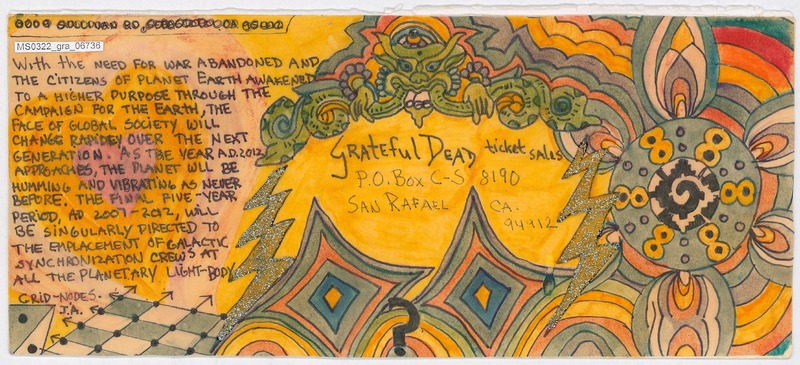 MS0322_gra_06736
With the NEED FOR WAR ABANDONED AND
THE CITIZENS OF PLANET EARTH AWAKENED
TO A HIGHER PURPOSE THROUGH THE
CAMPAIGN FOR THE EARTH, THE
FACE OF GLOBAL SOCIETY WILL
CHANGE RAPIDLY OVER THE NEXT
GENERATION. AS THE YEAR A.D. 2012
APPROACHES, THE PLANET WILL BE
HUMMING AND VIBRATING AS NEVER
BEFORE. THE FINAL FIVE-YEAR
PERIOD, AD 2007-2012, WILL
BE SINGULARLY DIRECTED TO
THE EMPLACEMENT OF GALACTIC
SYNCHRONIZATION CREWS AT
ALL THE PLANETARY LIGHT-BODY
GRID-NODES.
J.A.
Grateful Dead ticket sales
P.O. Box C-S 8190
SAN RAFAEL CA.
94912
?